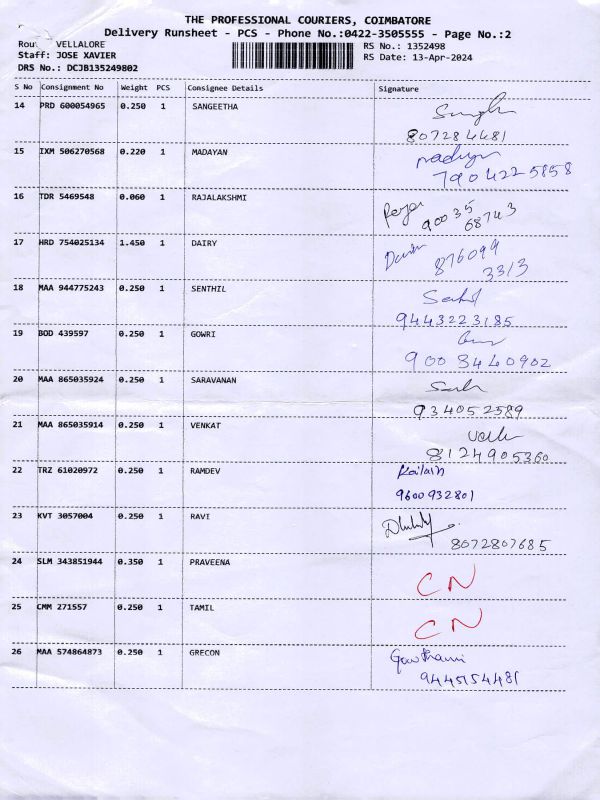 THE PROFESSIONAL COURIERS, COIMBATORE
Delivery Runsheet - PCS - Phone No.:0422-3505555 - Page No.:2
VELLALORE
RS No.: 1352498
Staff: JOSE XAVIER
RS Date: 13-Apr-2024
DRS No.: DCJB135249802
S No Consignment No Weight PCS Consignee Details Signature
14 PRD 600054965 0.250 1 SANGEETHA
807284481
15 IXM 506270568 0.220 1 MADAYAN
7904225858
16 TDR 5469548 0.060 1 RAJALAKSHMI
90035
68743
17 HRD 754025134 1.450 1 DAIRY
876099
3313
18 MAA 944775243 0.250 1 SENTHIL
9443223185
19 BOD 439597 0.250 1 GOWRI
9003440902
20 MAA 865035924 0.250 1 SARAVANAN
934052589
21 MAA 865035914 0.250 1 VENKAT
8124905360
22 TRZ 61020972 0.250 1 RAMDEV Kailain
9600932801
23 KVT 3057004 0.250 1 RAVI
8072807685
24 SLM 343851944 0.350 1 PRAVEENA CN
25 CMM 271557 0.250 1 TAMIL CN
26 MAA 574864873 0.250 1 GRECON Gowthami
9445154481